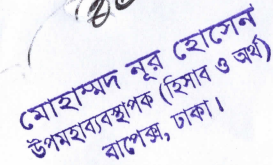 মোহাম্মদ নূর হোসেন
উপমহাব্যবস্থাপক (হিসাব ও অর্থ)
বাপেক্স, ঢাকা।